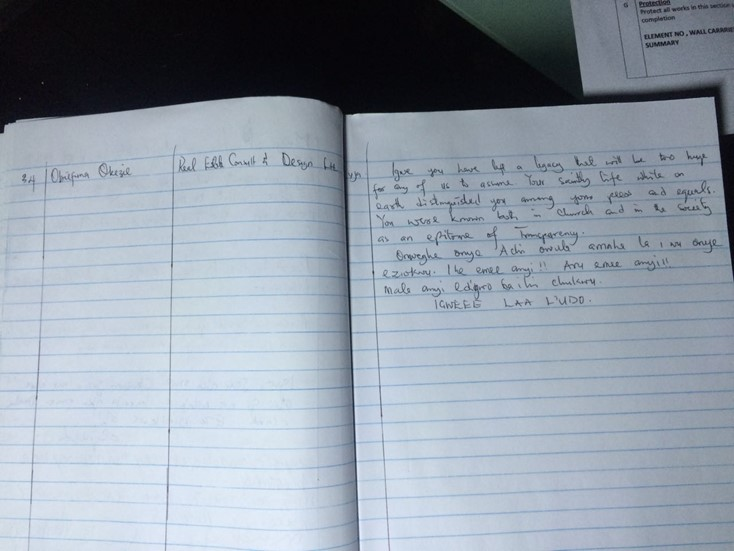 G Protection
Protect all works in this section
completion
ELEMENT NO , WALL CARRIED
SUMMARY
34 Okezie Real Estate Consult & Design
Igwe you have left a legacy that will be too huge
for any of us to assume Your saintly life while on
earth distinguished you among your peers and equals.
You were known both in Church and in the Society
as an epitome of Transparency.
Onweghe onye Achi amaha la i wu onye
eziokwu. Ike emee anyi!! Aru emee anyi!!!
Mals anyi chukwu.
IGWEEE LAA L'UDO.